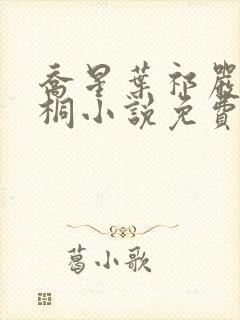 喬星葉祁嚴
桐小說免費
葛小歌